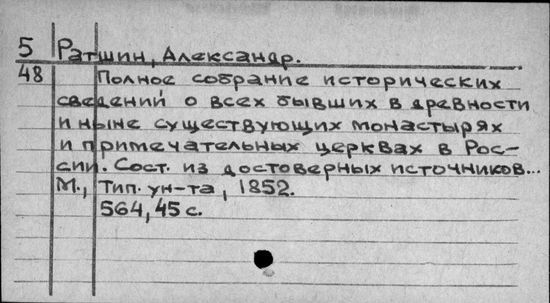 5 Ратшин, Александр.
48 Полное собрание исторических
сведений о всех бывших в древности
и ныне существующих монастырях
и примечательных церквах в Рос-
сии. Сост. из достоверных источников...
М., Тип. ун-та, 1852.
564, 45 с.